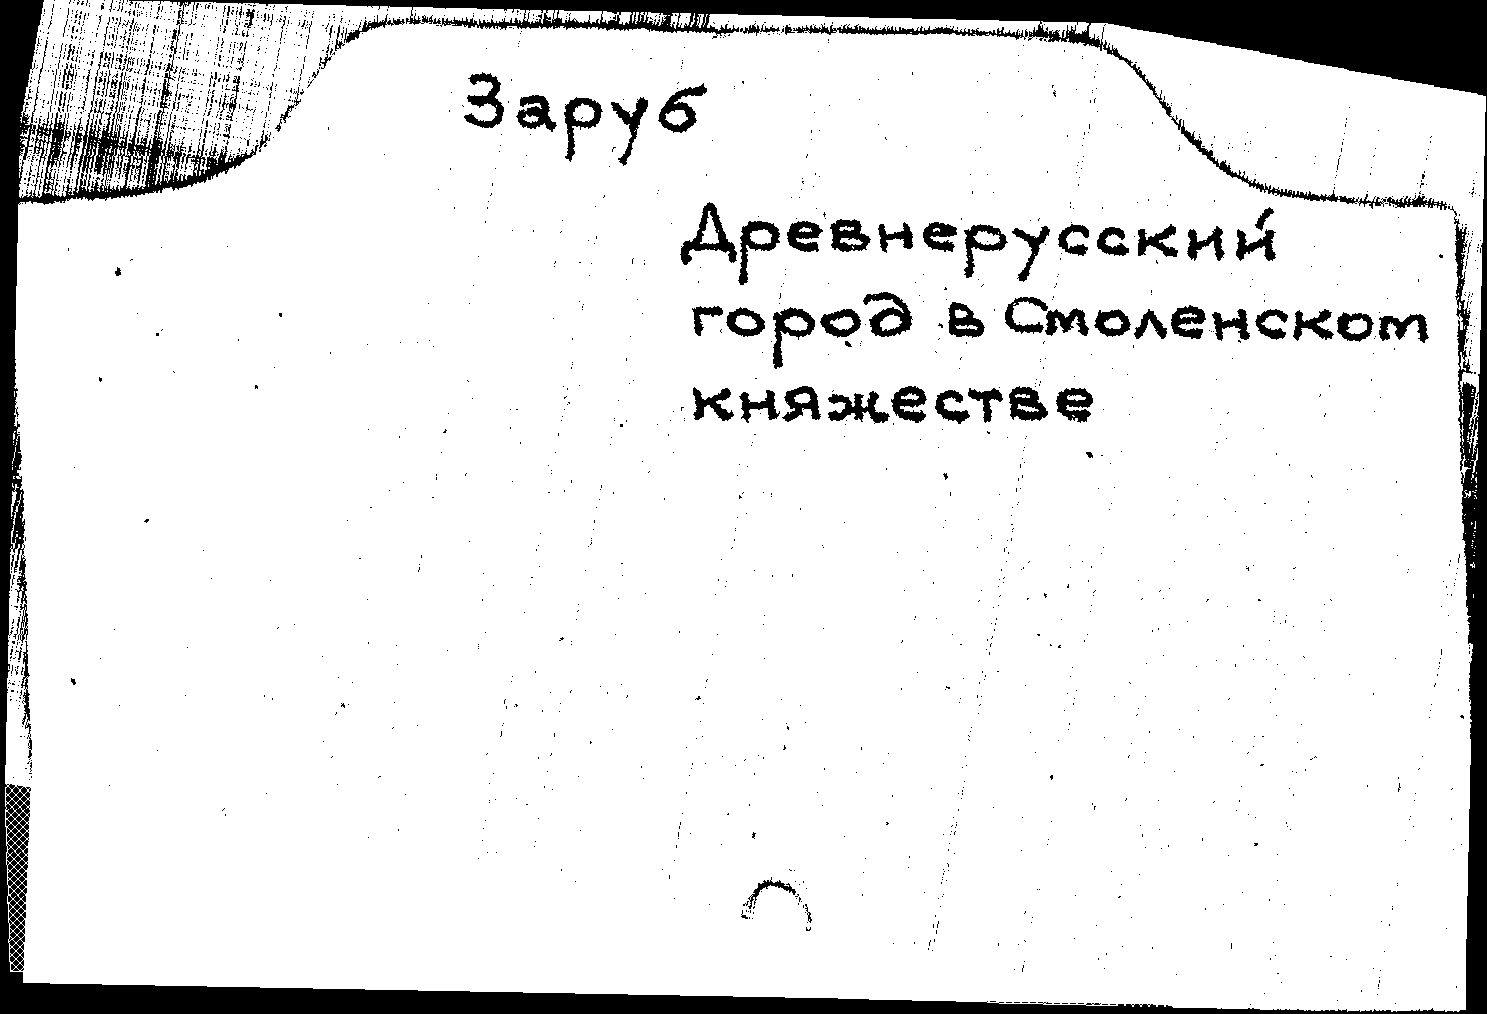 Заруб
Древнерусский
город в Смоленском
княжестве